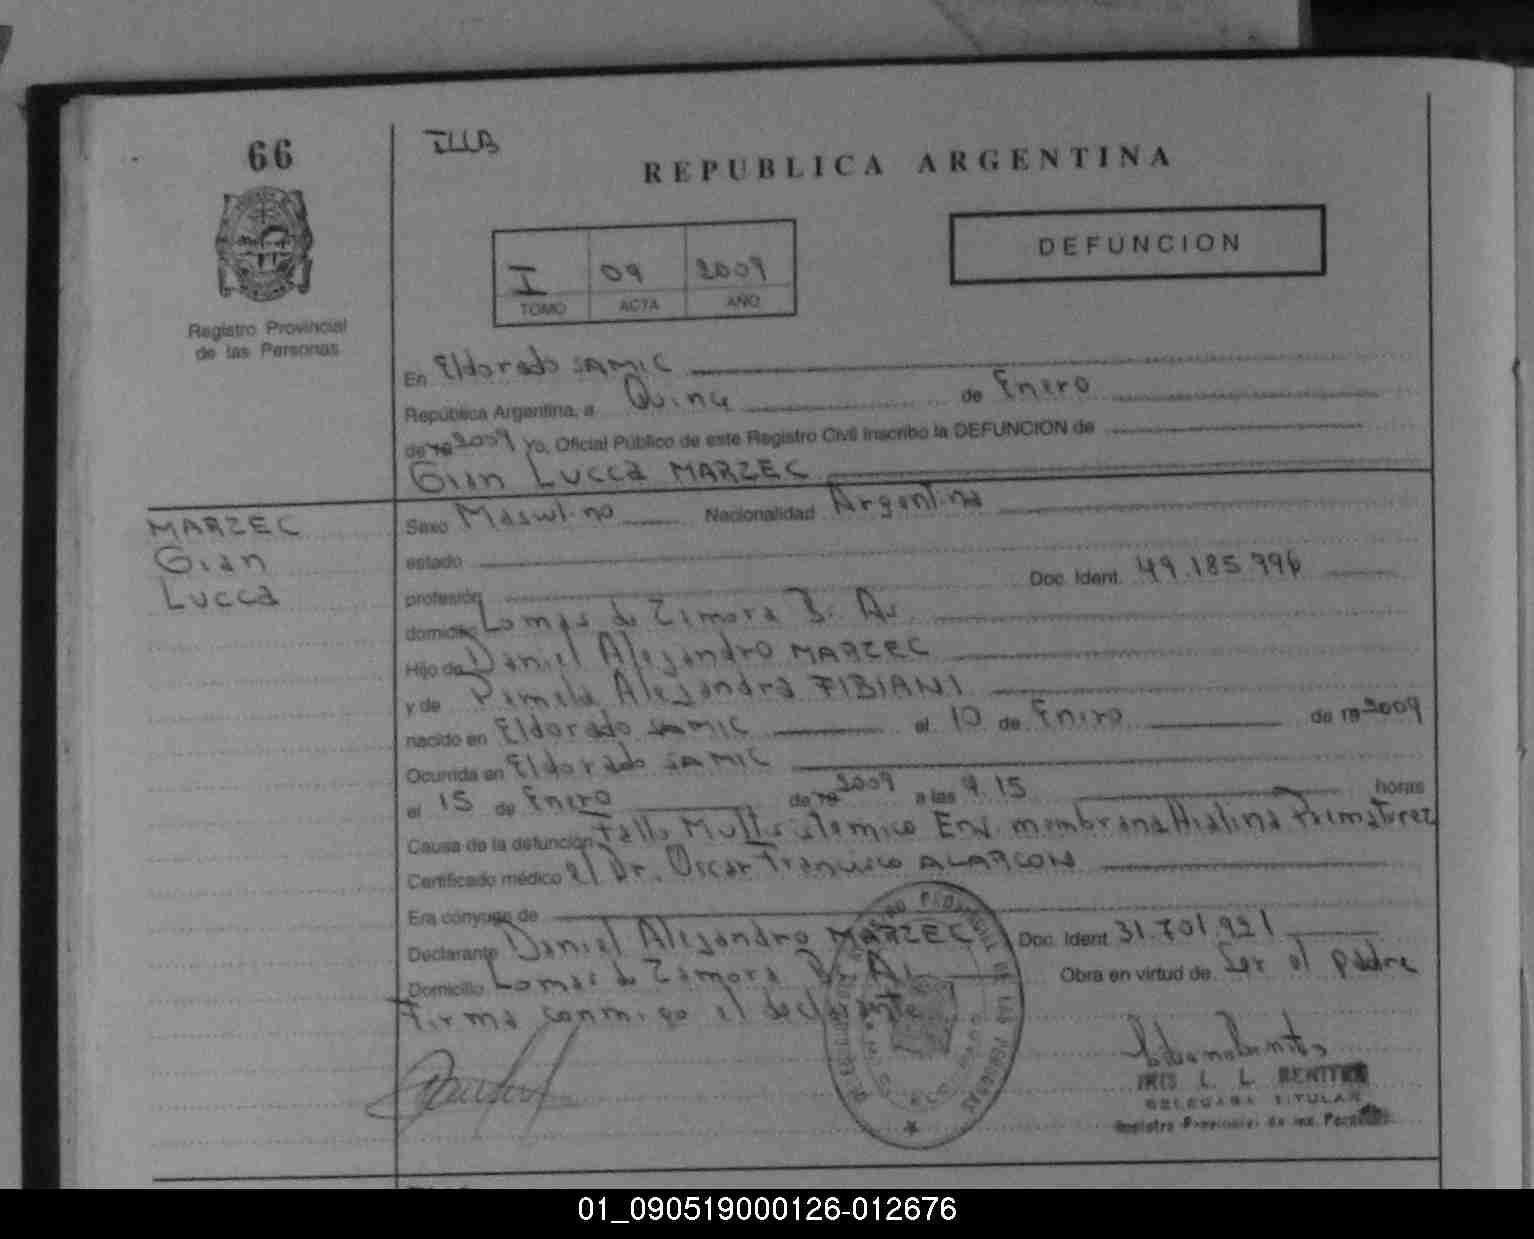 66
ILLB
REPUBLICA ARGENTINA
DEFUNCION
I 09 2009
TOMO ACTA AÑO
Registro Provincial
de las Personas
En Eldorado SAMIC
República Argentina, a Quince de Enero
de 19 2009 yo, Oficial Público de este Registro Civil inscribo la DEFUNCION de
Gian Lucca MARZEC
MARZEC
Gian
Lucca
Sexo Masculino Nacionalidad Argentina
estado
profesión Doc. Ident. 49.185.996
domicilio Lomas de Zamora Bs. As.
Hijo de Daniel Alejandro MARZEC
y de Pamela Alejandra FIBIANI
nacido en Eldorado SAMIC el 10 de Enero de 19 2009
Ocurrida en Eldorado SAMIC
el 15 de Enero de 19 2009 a las 9.15 horas
Causa de la defunción Fallo Multisistemico Enf. membrana Hialina Prematurez
Certificado médico el Dr. Oscar Francisco ALARCON
Era cónyuge de
Declarante Daniel Alejandro MARZEC Doc. Ident. 31.701.921
Domicilio Lomas de Zamora Bs. As. Obra en virtud de Ser el padre
Firma conmigo el declarante
IRIS L. L. BENITEZ
DELEGADA TITULAR
Registro Provincial de las Personas
01_090519000126-012676